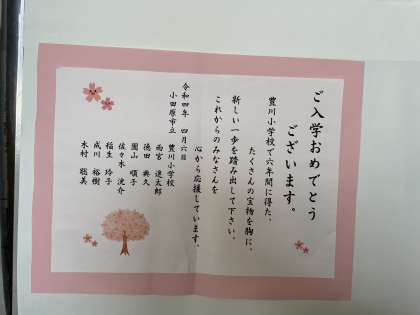 ご入学おめでとう
ございます。
豊川小学校で六年間に得た、
たくさんの宝物を胸に、
新しい一歩を踏み出して下さい。
これからのみなさんを
心から応援しています。
令和四年 四月六日
小田原市立 豊川小学校
雨宮 達太郎
徳田 典久
園山 順子
佐々木 洸介
稲生 玲子
成川 裕樹
木村 聡美